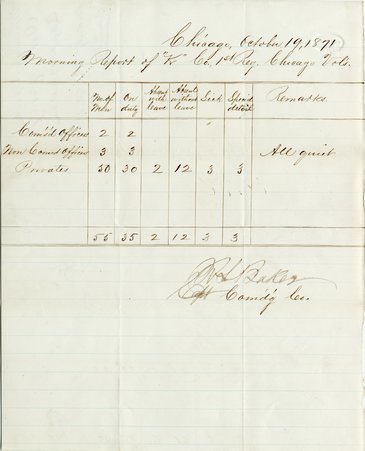 Chicago, October 19, 1871
Morning Report of "K" Co. 1st Reg. Chicago Vols.
No. of Men On duty Absent with leave Absent without leave Sick Special detail Remarks
Com'd Officers 2 2
Non Comd Officers 3 3 All quiet
Privates 50 30 2 12 3 3
55 35 2 12 3 3
Baker
Capt Com'd'g Co.